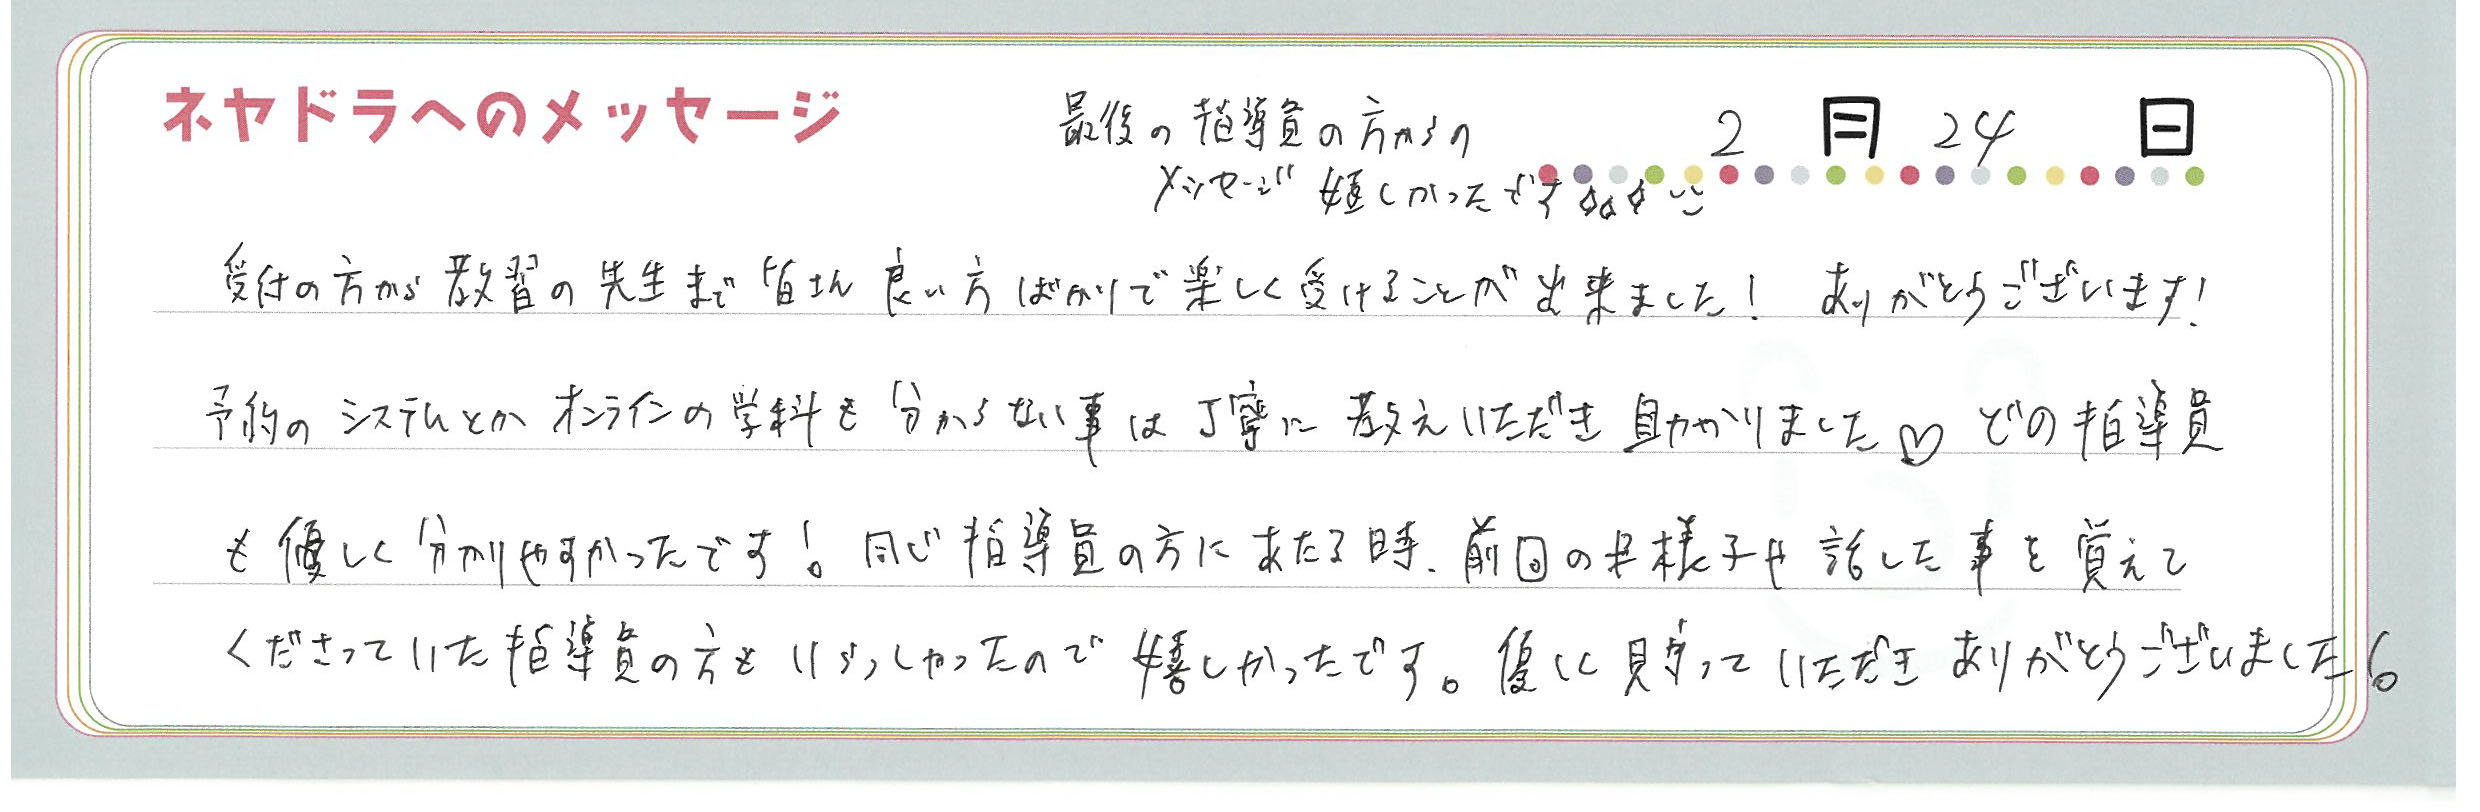 ネヤドラへのメッセージ
2月24日
最後の指導員の方からの
メッセージ嬉しかったです
受付の方から教習の先生まで皆さん良い方ばかりで楽しく受けることが出来ました! ありがとうございます!
予約のシステムとかオンラインの学科も分からない事は丁寧に教えいただき助かりました♡ どの指導員
も優しく分かりやすかったです!。同じ指導員の方にあたる時、前回の様子や話した事を覚えて
くださっていた指導員の方もいらっしゃったので嬉しかったです。優しくしていただきありがとうございました!。